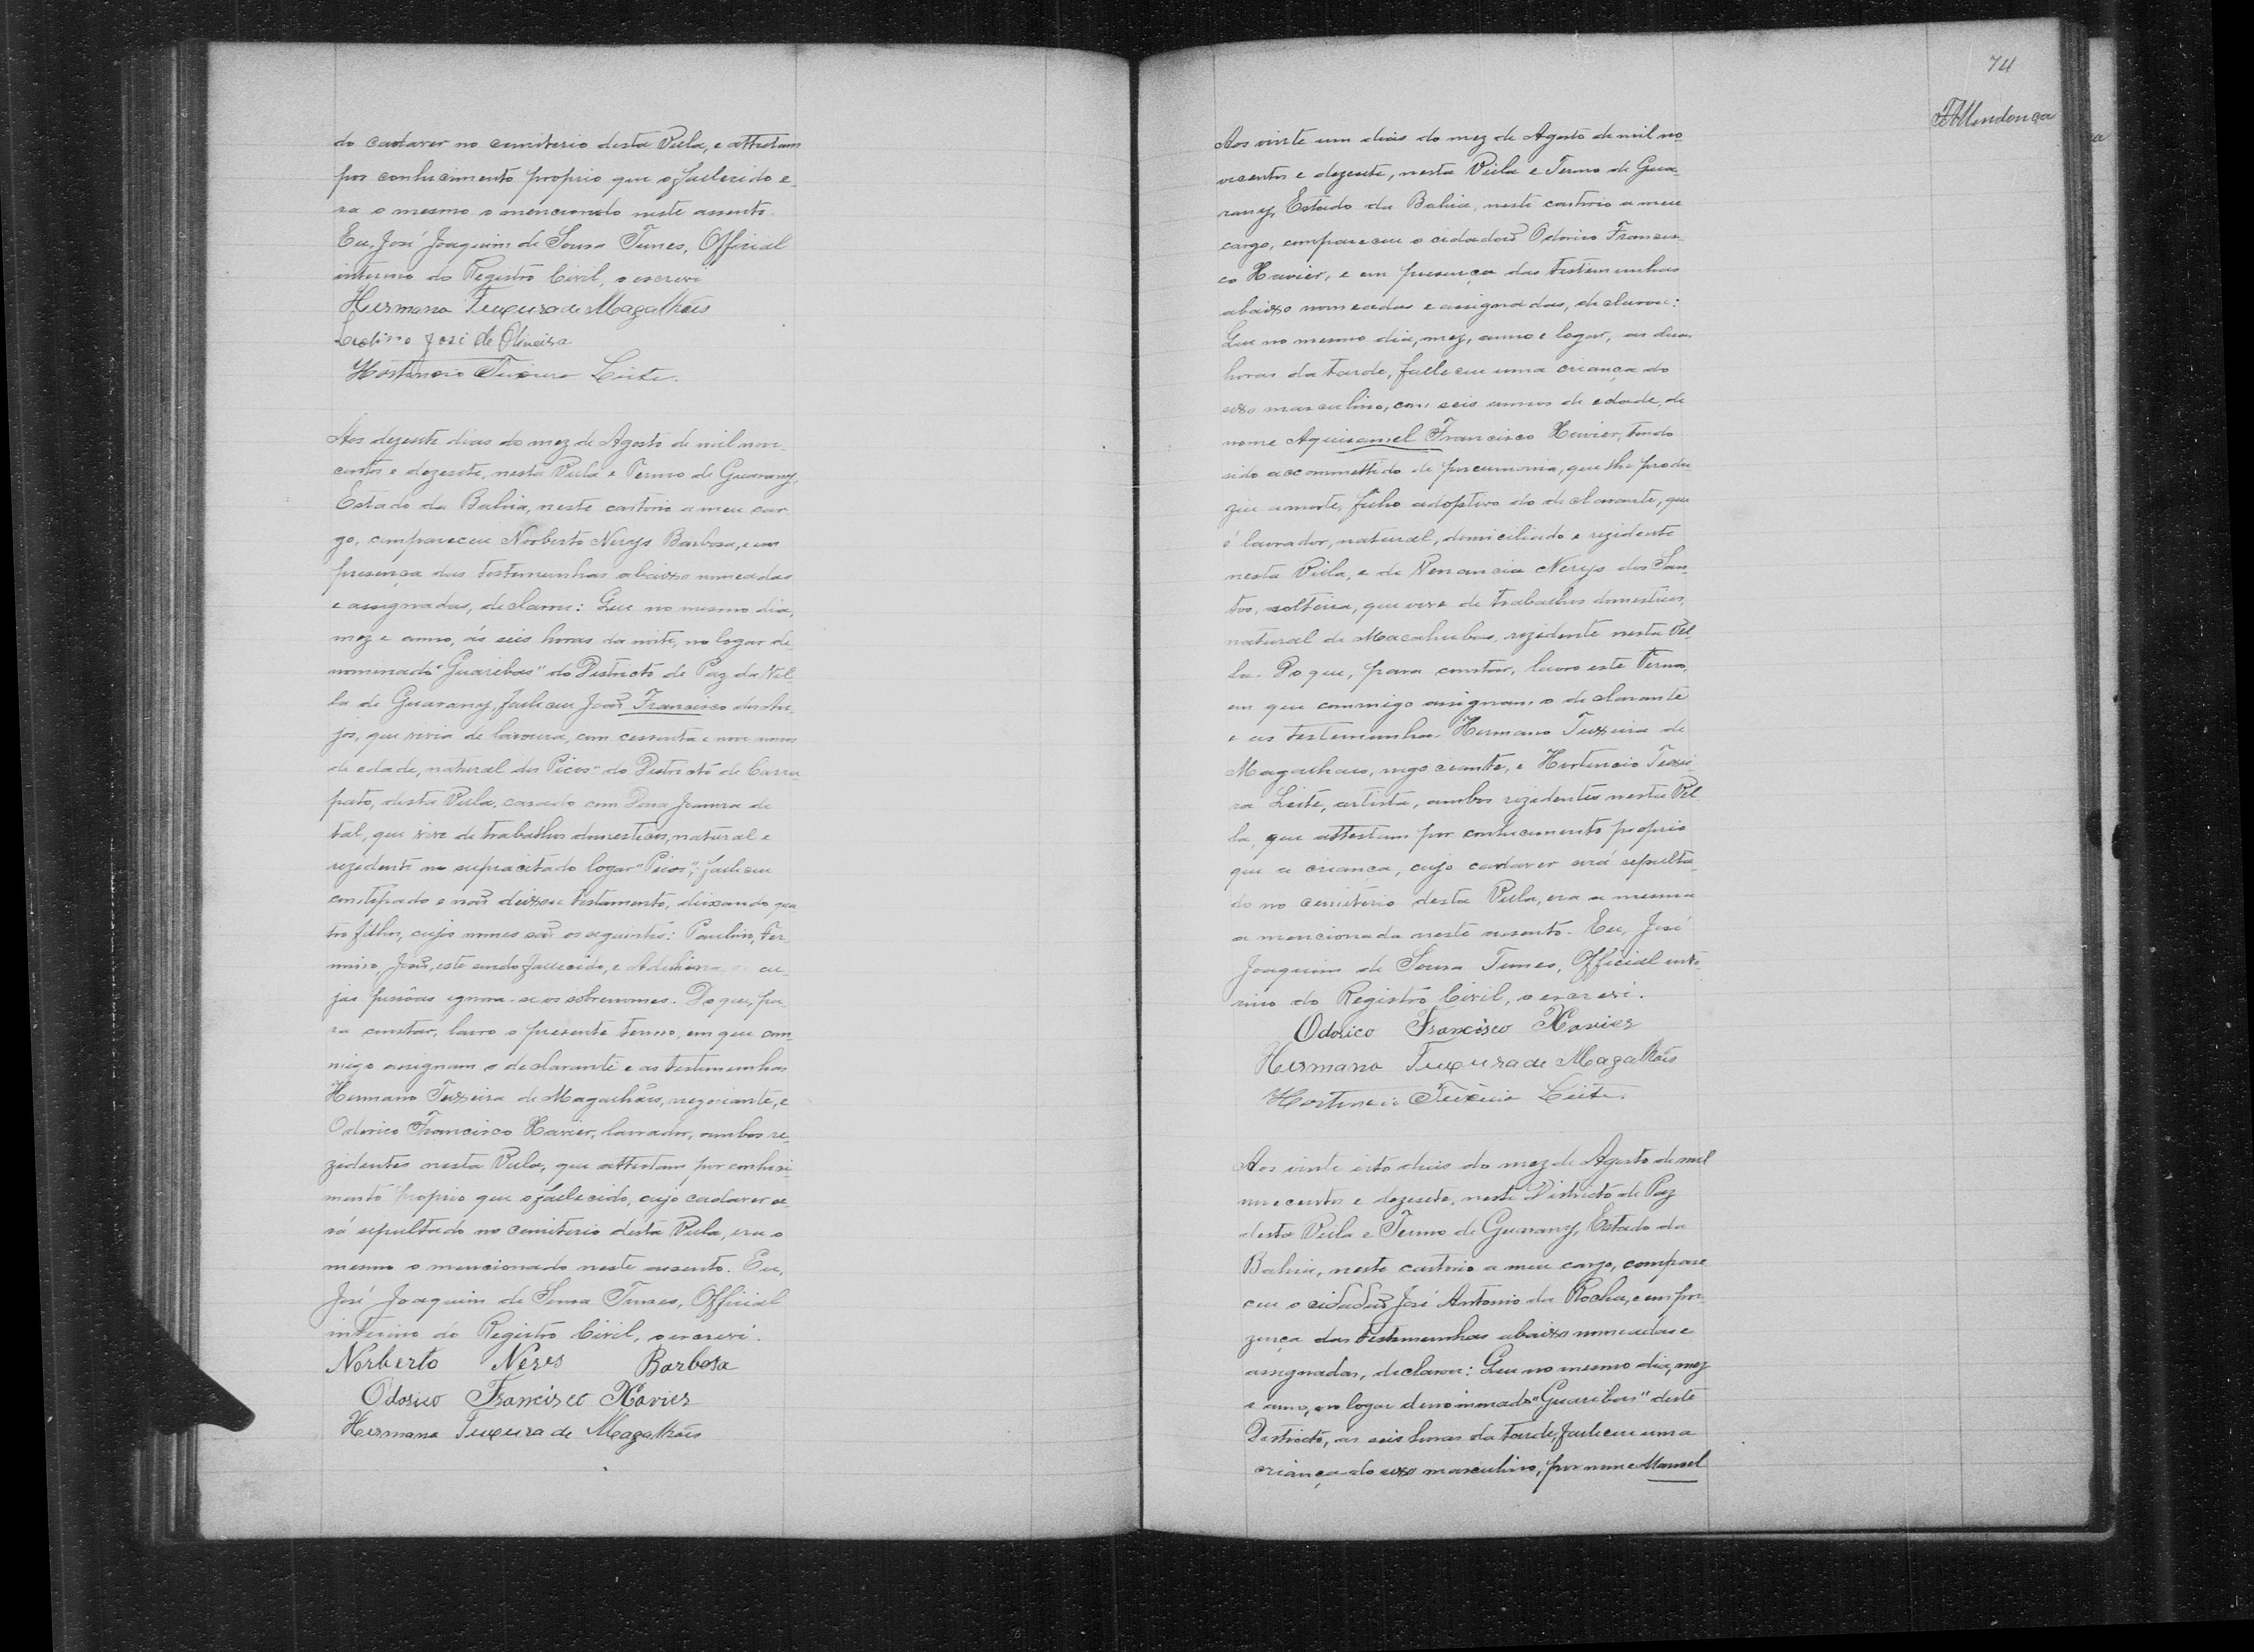 do cadaver no cemiterio desta Villa, e attestam
por conhecimento proprio que o fallecido e-
ra o mesmo o mencionado neste assento.
Eu, José Joaquim de Sousa Tunes, Official
interino do Registro Civil, o escrevi
Hermano Teixeira de Magalhães
José de Oliveira
Hortencio Teixeira Leite.
Aos dezesete dias do mez de Agosto de mil nove-
centos e dezesete, nesta Villa e Termo de Guarany,
Estado da Bahia, neste cartorio a meu car-
go, compareceu Norberto Nerys Barbosa, e em
presença das testemunhas abaixo nomeadas
e assignadas, declarou: Que no mesmo dia,
mez e anno, ás seis horas da noite, no logar de-
nominado "Guaribas" do Districto de Paz da Vil-
la de Guarany, falleceu João Francisco dos An-
jos, que vivia de lavoura, com cessenta e nove annos
de edade, natural dos "Picos" do Districto de Carra-
pato, desta Villa, casado com Dona Joanna de
tal, que vive de trabalhos domesticos, natural e
rezidente no supracitado logar "Picos"; falleceu
constipado e não deixou testamento, deixando qua-
tro filhos, cujos nomes são os seguintes: Paulino, Fir-
mino, João, este sendo fallecido, e cu-
jas pessôas ignora-se os sobrenomes. Do que, pa-
ra constar, lavro o presente termo, em que com-
migo assignam o declarante e as testemunhas
Hermano Teixeira de Magalhães, negociante, e
Odorico Francisco Xavier, lavrador, ambos re-
zidentes nesta Villa, que attestam por conheci-
mento proprio que o fallecido, cujo cadaver se-
rá sepultado no cemiterio desta Villa, era o
mesmo o mencionado neste assento. Eu,
José Joaquim de Sousa Tunes, Official
interino do Registro Civil, o escrevi.
Norberto Neres Barbosa
Odorico Francisco Xavier
Hermano Teixeira de Magalhães
74
Mendonça
Aos vinte um dias do mez de Agosto de mil no-
vecentos e dezesete, nesta Villa e Termo de Gua-
rany, Estado da Bahia, neste cartorio a meu
cargo, compareceu o cidadão Odorico Francis-
co Xavier, e em presença das testemunhas
abaixo nomeadas e assignadas, declarou:
Que no mesmo dia, mez, anno e logar, as duas
horas da tarde, falleceu uma criança do
sexo masculino, com seis annos de edade, de
nome Aquisamel Francisco Xavier, tendo
sido accommettido de pneumonia, que lhe produ-
ziu a morte, filho adoptivo do declarante, que
é lavrador, natural, domiciliado e rezidente
nesta Villa, e de Venancia Nerys dos San-
tos, solteira, que vive de trabalhos domesticos,
natural de Macahubas, rezidente nesta Vil-
la. Do que, para constar, lavro este Termo,
em que commigo assignam o declarante
e as testemunhas Hermano Teixeira de
Magalhães, negociante, e Hortencio Teixei-
ra Leite, artista, ambos rezidentes nesta Vil-
la, que attestam por conhecimento proprio
que a criança, cujo cadaver será sepulta-
do no cemiterio desta Villa, era a mesma
a mencionada neste assento. Eu, José
Joaquim de Sousa Tunes, Official inte-
rino do Registro Civil, o escrevi.
Odorico Francisco Xavier
Hermano Teixeira de Magalhães
Hortencio Teixeira Leite.
Aos vinte oito dias do mez de Agosto de mil
novecentos e dezesete, neste Districto de Paz
desta Villa e Termo de Guarany, Estado da
Bahia, neste cartorio a meu cargo, compare-
ceu o cidadão José Antonio da Rocha, e em pre-
zença das testemunhas abaixo nomeadas e
assignadas, declarou: Que no mesmo dia, mez
e anno, no logar denominado "Guaribas" deste
Districto, as seis horas da tarde, falleceu uma
criança do sexo masculino, por nome Manoel